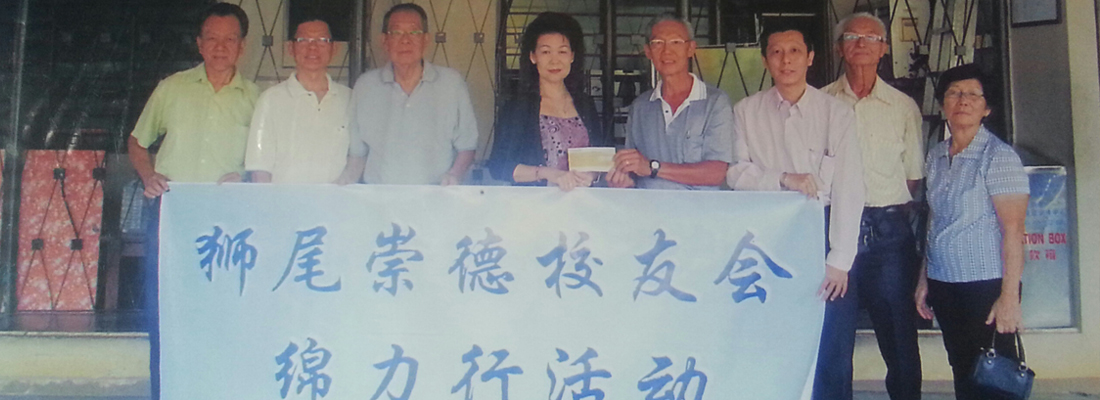 狮尾崇德校友会
绵力行活动
TION BOX